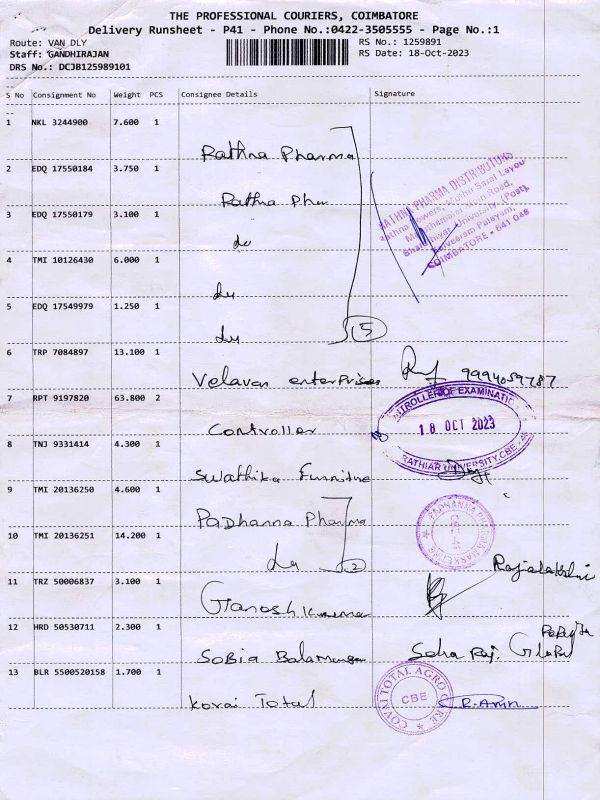 THE PROFESSIONAL COURIERS, COIMBATORE
Delivery Runsheet - P41 - Phone No.:0422-3505555 - Page No.:1
Route: VAN DLY RS No.: 1259891
Staff: GANDHIRAJAN RS Date: 18-Oct-2023
DRS No.: DCJB125989101
S No Consignment No Weight PCS Consignee Details Signature
1 NKL 3244900 7.600 1
Rathna Pharma
2 EDQ 17550184 3.750 1
Rathna Phar
RATHNA PHARMA DISTRIBUTORS
3 EDQ 17550179 3.100 1
do
COIMBATORE - 641 046
4 TMI 10126430 6.000 1
do
5 EDQ 17549979 1.250 1
do 5
6 TRP 7084897 13.100 1
Velavan enterprises 9994059787
7 RPT 9197820 63.800 2
Controller
CONTROLLER OF EXAMINATIONS
18 OCT 2023
BHARATHIAR UNIVERSITY, CBE - 46
8 TNJ 9331414 4.300 1
Swathika Furniture
9 TMI 20136250 4.600 1
Padhanna Pharma
PADHANNA PHARMA MARKETING
10 TMI 20136251 14.200 1
do 2
Rajalakshmi
11 TRZ 50006837 3.100 1
Ganeshkumar
12 HRD 50530711 2.300 1
Sobia Balamurugan
13 BLR 5500520158 1.700 1
Kovai Total
COVAI TOTAL AGRO CARE
CBE